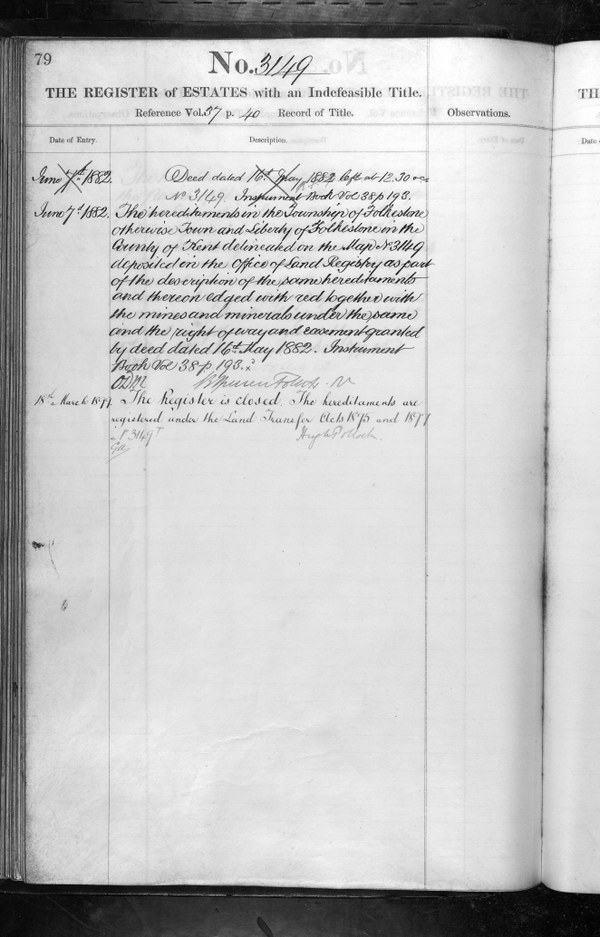 79
No. 3149
THE REGISTER of ESTATES with an Indefeasible Title.
Reference Vol. 37 p. 40 Record of Title.
Observations.
TH
Date of Entry.
Description.
Date o
June 7th 1882.
Deed dated 16th May 1882 left at 12.30
No 3149. Instrument Book Vol 38 p 193.
June 7th 1882.
The hereditaments in the Township of Folkestone
otherwise Town and Liberty of Folkestone in the
County of Kent delineated on the Map No 3149
deposited in the Office of Land Registry as part
of the description of the same hereditaments
and thereon edged with red together with
the mines and minerals under the same
and the right of way and easement granted
by deed dated 16th May 1882. Instrument
Book Vol 38 p 193.
18th March 1899
The Register is closed. The hereditaments are
registered under the Land Transfer Acts 1875 and 1897
3149
Hugh Pollock.